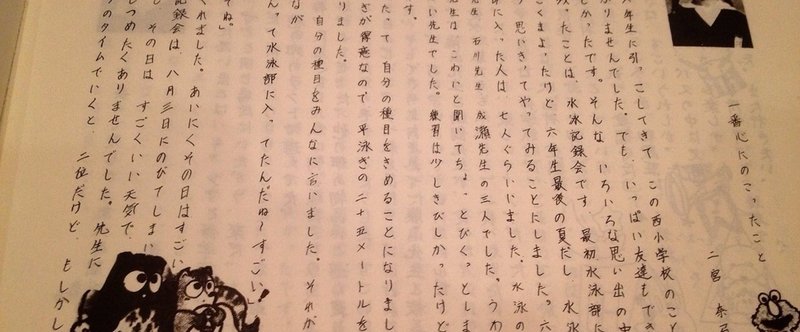 一番心にのこったこと
二宮
六年生に引っこしてきて この西小学校のこと
かりませんでした。でも、いっぱい友達もでき
しかったです。そんな いろいろな思い出の中
ったことは、水泳記録会です。最初水泳部に
くまよったけど 六年生最後の夏だし 水泳
思いきってやってみることにしました。六
部に入った人は 七人ぐらいいました。水泳の
先生 石川先生 成瀬先生の三人でした。うわ
先生は こわいと聞いてちょっとびくっとしま
い先生でした。練習は少しきびしかったけど
す。
たって 自分の種目をきめることになりまし
ぎが得意なので 平泳ぎの二十五メートルを
りました。
自分の種目をみんなに言いました。それが
なが
んって水泳部に入ってたんだね〜すごい！
ぞね」
くれました。あいにくその日はすごい
記録会は 八月三日にのびてしまい
その日は すごくいい天気で
しつめたくありませんでした。先生に
のタイムでいくと、二位だけど、もしかし